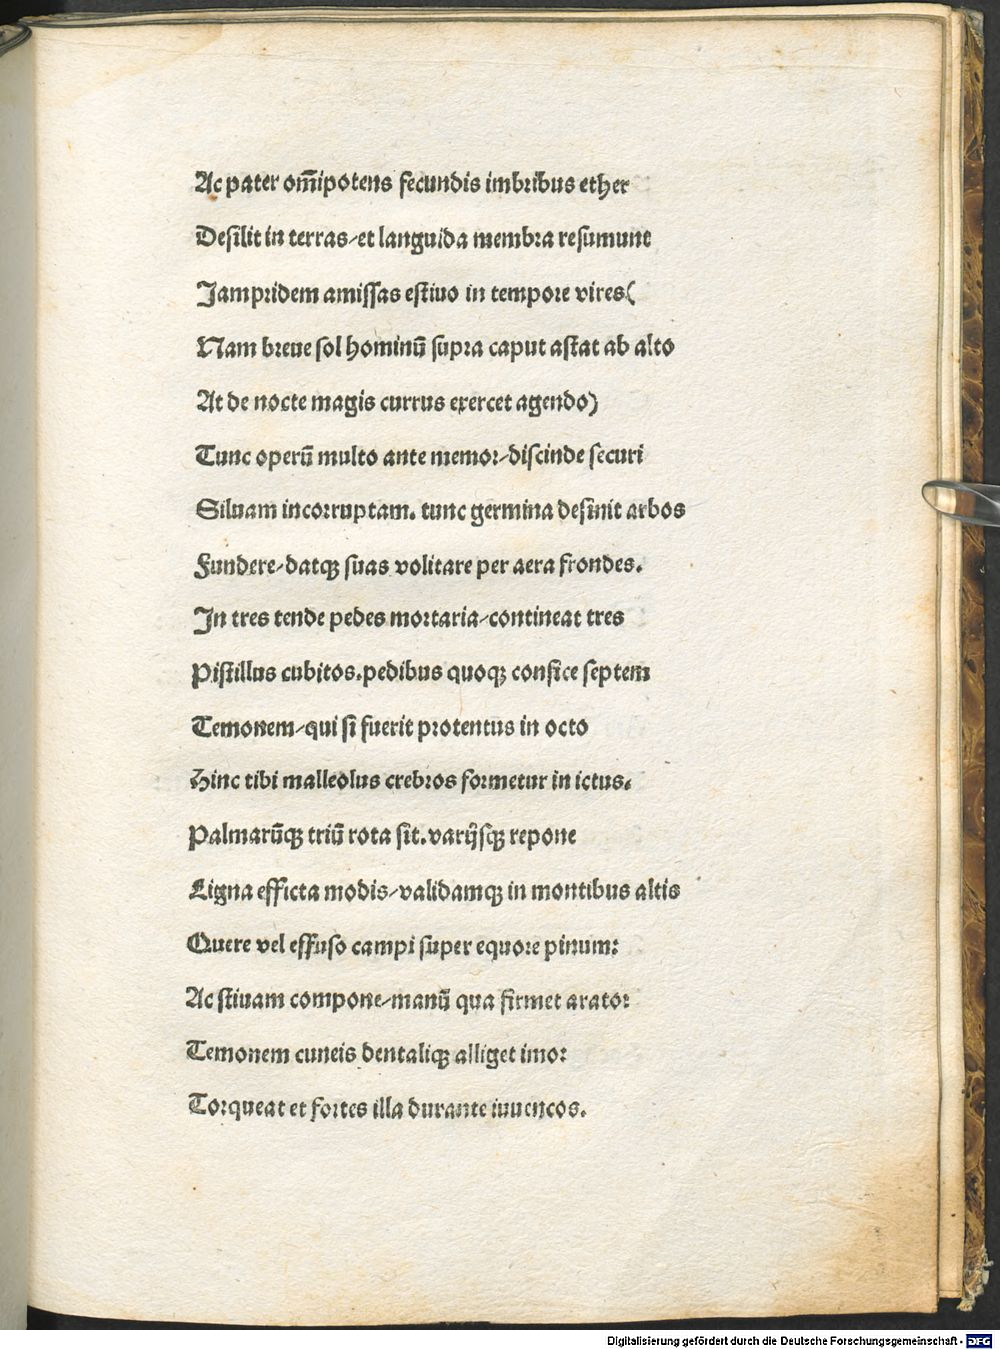 Ac pater om̄ipotens fecundis imbribus ether
Desilit in terras/et languida membra resumunt
Jampridem amissas estiuo in tempore vires(
Nam breue sol hominū supra caput astat ab alto
At de nocte magis currus exercet agendo)
Tunc operū multo ante memor/discinde securi
Siluam incorruptam. tunc germina desinit arbos
Fundere/datqꝫ suas volitare per aera frondes.
In tres tende pedes mortaria/contineat tres
Pistillus cubitos.pedibus quoqꝫ confice septem
Temonem/qui si fuerit protentus in octo
Hinc tibi malleolus crebros formetur in ictus.
Palmarūqꝫ triū rota sit.varijsqꝫ repone
Ligna efficta modis/validamqꝫ in montibus altis
Quere vel effuso campi super equore pinum:
Ac stiuam compone/manū qua firmet arator
Temonem cuneis dentaliqꝫ alliget imo:
Torqueat et fortes illa durante iuuencos.
Digitalisierung gefördert durch die Deutsche Forschungsgemeinschaft - DFG